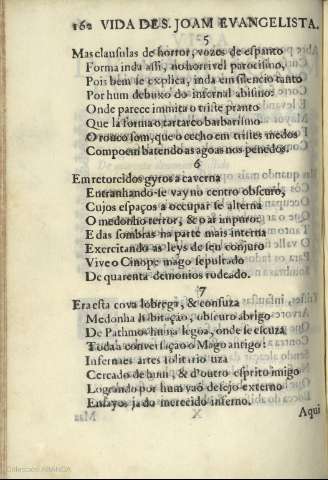 162 VIDA DE S. JOAM EVANGELISTA.
5
Mas clausulas de horror, vozes de espanto
Forma inda assi, no horrivel parocismo,
Pois bem se explica, inda em silencio tanto
Por hum debuxo do infernal abismo:
Onde parece immita o triste pranto
Que lá forma o tartareo barbarismo
O rouco som, que o ecchο em tristes medos
Compoem batendo as agoas nos penedos.
6
Em retorcidos gyros a caverna
Entranhando-se vay no centro obscuro,
Cujos espaços a occupar se alterna
O medonho terror, & o ar impuro:
E das sombras na parte mais interna
Exercitando as leys de seu conjuro
Vive o Cinope mago sepultado
De quarenta demonios rodeado.
7
Era esta cova lobrega, & confuza
Medonha habitação, obscuro abrigo
De Pathmos huma legoa, onde se escuza
Toda a conversaçao o Mago antigo:
Infernaes artes solitario uza
Cercado de hum, & d'outro esprito imigo
Logrando por hum vaõ desejo externo
Ensayos ja do merecido inferno.
X
Aqui
Colección ABANCA